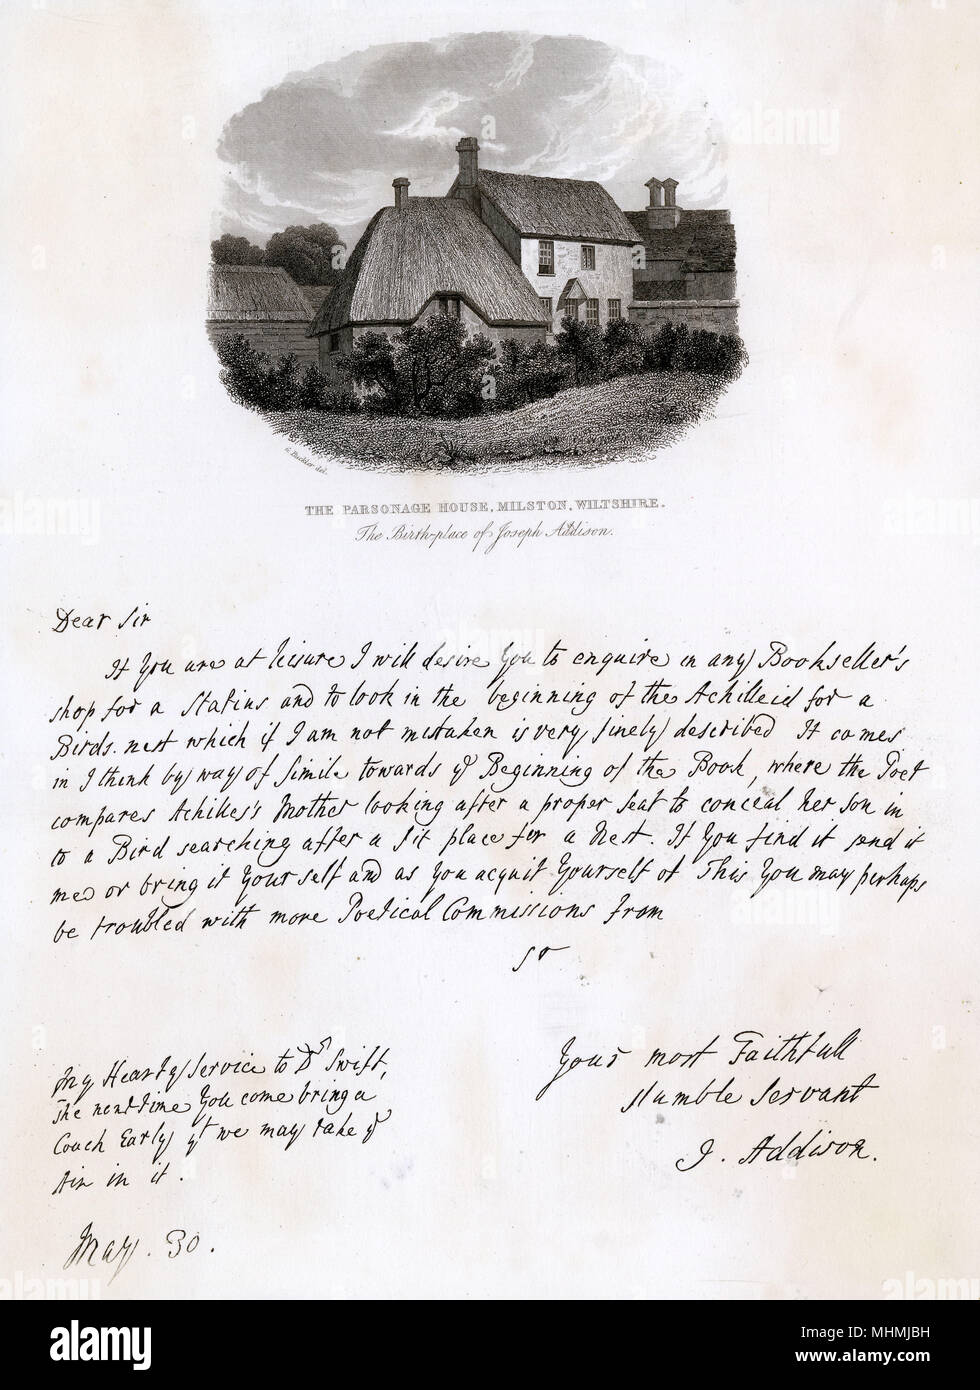 G. Buckler del.
THE PARSONAGE HOUSE, MILSTON, WILTSHIRE.
The Birth-place of Joseph Addison.
Dear Sir
If You are at leisure I will desire You to enquire in any Bookseller's
shop for a Statius and to look in the beginning of the Achilleid for a
Birds-nest which if I am not mistaken is very finely described It comes
in I think by way of Simile towards ye Beginning of the Book, where the Poet
compares Achilles's Mother looking after a proper seat to conceal her son in
to a Bird searching after a fit place for a Nest. If You find it send it
me or bring it Your self and as You acquit Yourself of This You may perhaps
be troubled with more Poetical Commissions from
Sr
Your most Faithfull
Humble Servant
J. Addison.
My Hearty Service to Dr Swift,
The next time You come bring a
Coach Early yt we may take ye
Air in it.
May. 30.
alamy
Image ID: MHMJBH
www.alamy.com